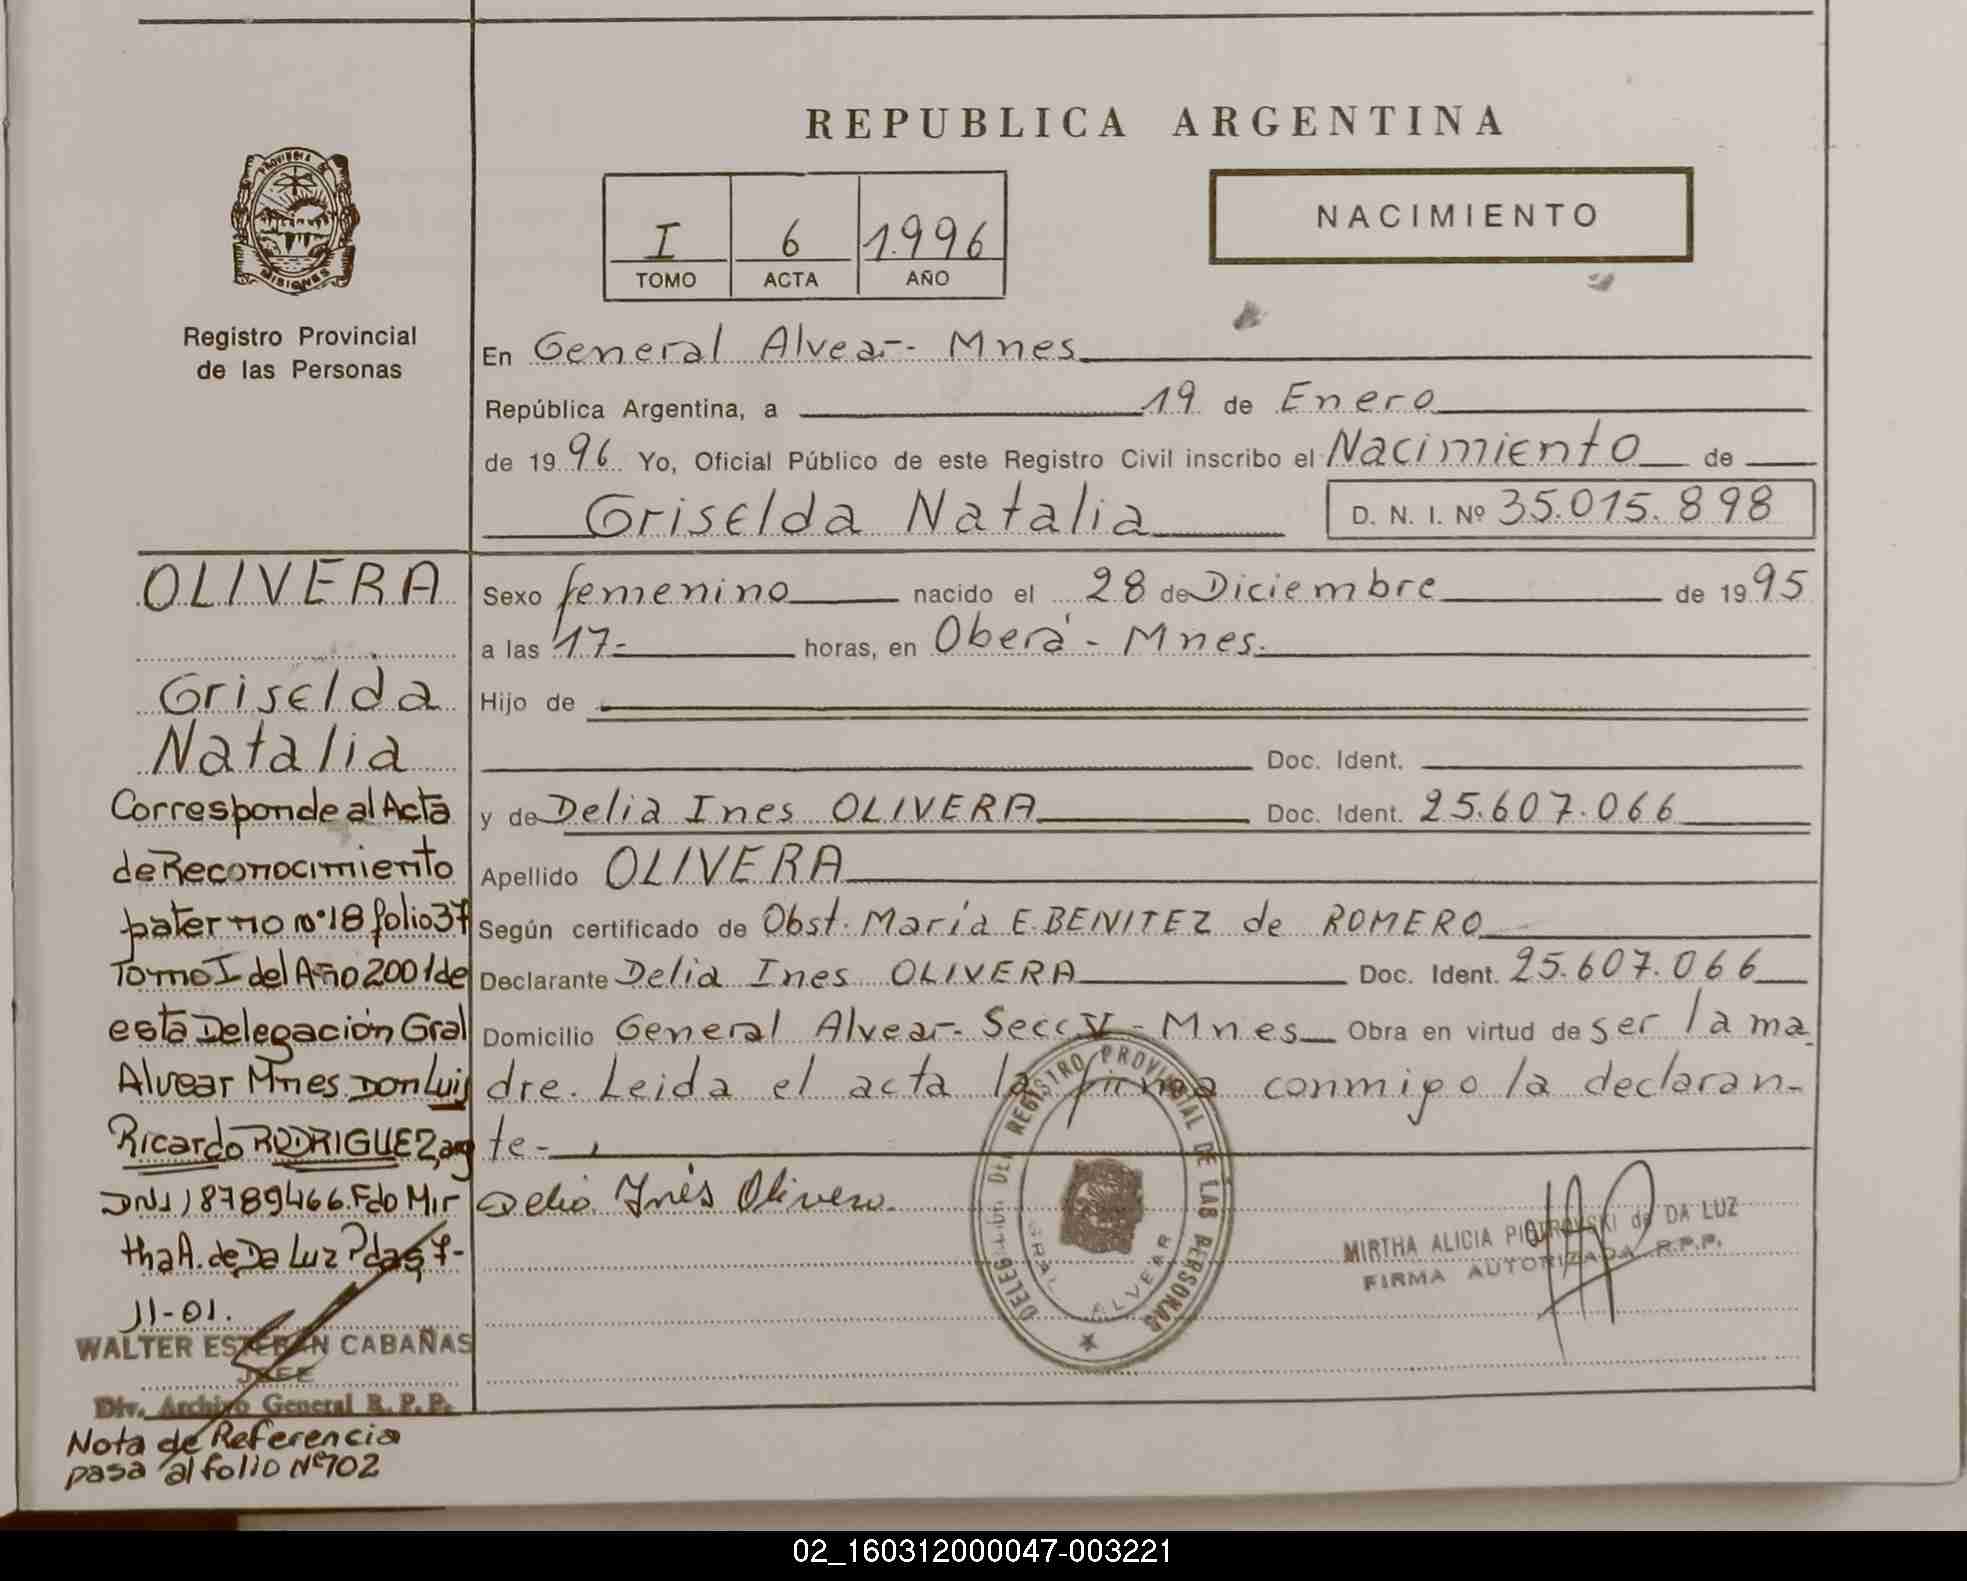 REPUBLICA ARGENTINA
PROVINCIA DE
MISIONES
Registro Provincial
de las Personas
I 6 1.996
TOMO ACTA AÑO
NACIMIENTO
En General Alvear.- Mnes
República Argentina, a 19 de Enero
de 19 96 Yo, Oficial Público de este Registro Civil inscribo el Nacimiento de
Griselda Natalia D. N. I. Nº 35.015.898
Sexo femenino nacido el 28 de Diciembre de 19 95
a las 17.- horas, en Oberá - Mnes.
Hijo de
Doc. Ident.
y de Delia Ines OLIVERA Doc. Ident. 25.607.066
Apellido OLIVERA
Según certificado de Obst. María E. BENITEZ de ROMERO
Declarante Delia Ines OLIVERA Doc. Ident. 25.607.066
Domicilio General Alvear.- Secc V - Mnes Obra en virtud de ser la ma
dre. Leida el acta la firma conmigo la declaran-
te-
Delia Inés Olivera.
DELEG. DEL REGISTRO PROVINCIAL DE LAS PERSONAS
GRAL ALVEAR
MIRTHA ALICIA PIOTROVSKI de DA LUZ
FIRMA AUTORIZADA R.P.P.
OLIVERA
Griselda
Natalia
Corresponde al Acta
de Reconocimiento
paterno nº 18 folio 37
Tomo I del Año 2001 de
esta Delegación Gral
Alvear Mnes. Don Luis
Ricardo RODRIGUEZ, arg
DNI 18789466. Fdo Mir
tha A. de Da Luz Pdas, 7-
11-01.
WALTER ESTEBAN CABAÑAS
JEFE
Div. Archivo General R. P. P.
Nota de Referencia
pasa al folio Nº 102
02_160312000047-003221